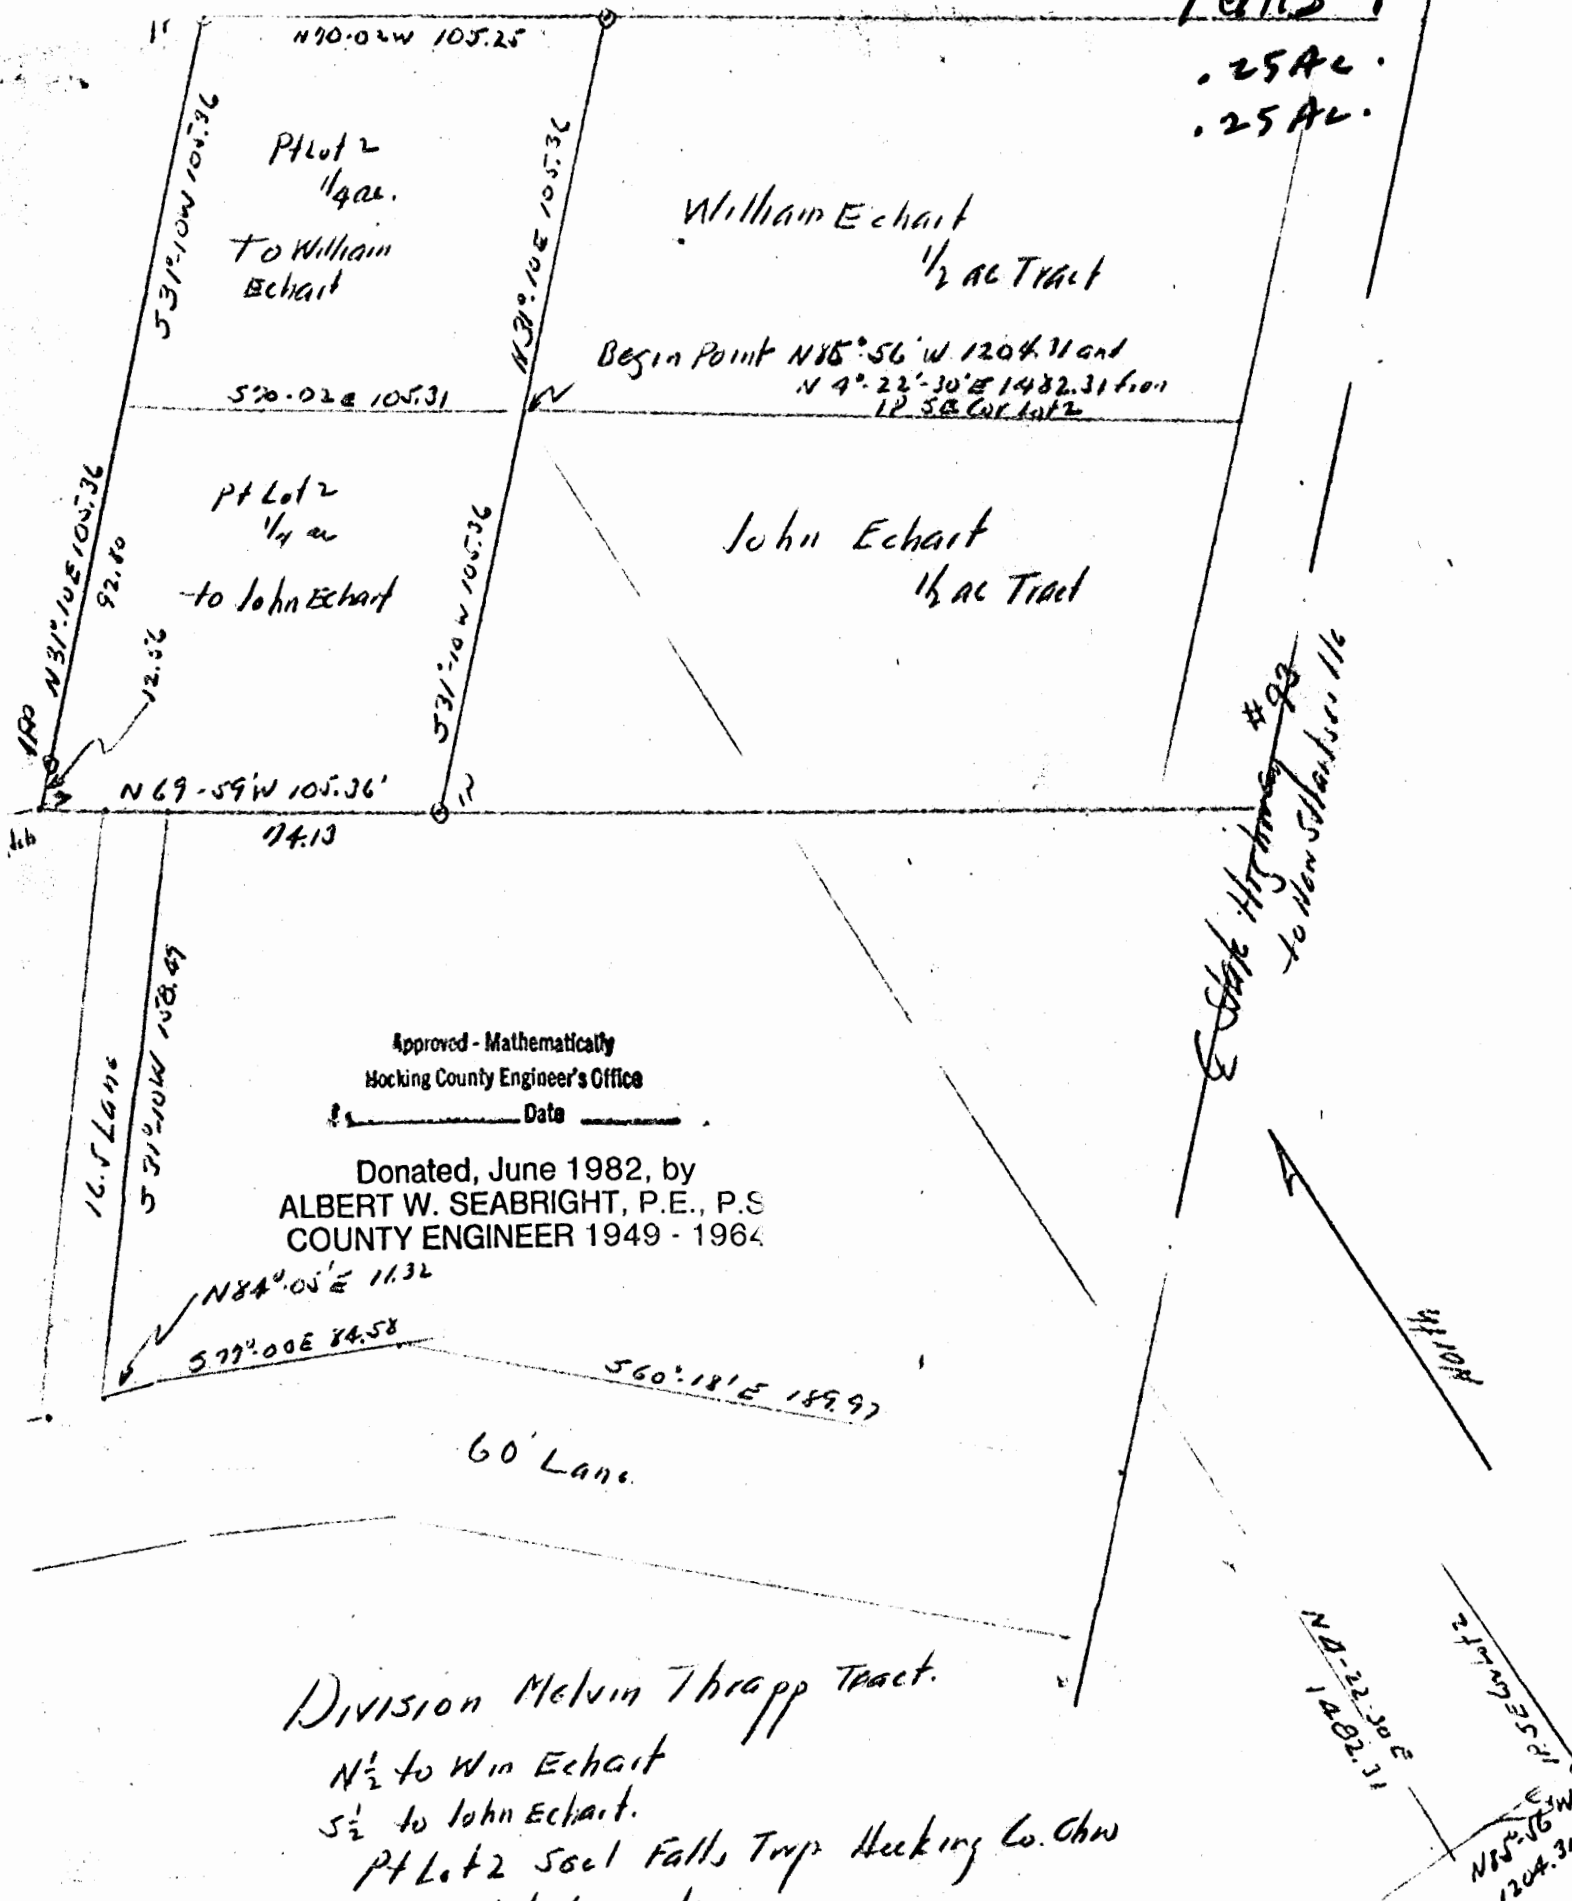 .25 Ac.
.25 Ac.
N70-02W 105.25
S31°-10W 105.36
Pt Lot 2
1/4 ac.
To William
Echart
N31°-10E 105.36
William Echart
1/2 ac Tract
Begin Point N85°-56'W 1204.31 and
N 4°-22'-30"E 1482.31 from
IP SE Cor Lot 2
S70-02E 105.31
N31°-10E 105.36
92.80
12.56
Pt Lot 2
1/4 ac
to John Echart
S31°-10W 105.36
John Echart
1/2 ac Tract
IP
N69-59'W 105.36'
74.13
State Highway #93
to New Straitsville
16.5 Lane
S31°-10W 158.49
Approved - Mathematically
Hocking County Engineer's Office
Date
Donated, June 1982, by
ALBERT W. SEABRIGHT, P.E., P.S
COUNTY ENGINEER 1949 - 1964
N84°-05'E 11.32
S77°-00E 84.58
S60°-18'E 189.97
60' Lane
North
N4-22-30E
1482.31
IP SE Cor Lot 2
N85°-56'W
1204.31
Division Melvin Thrapp Tract.
N1/2 to Wm Echart
S1/2 to John Echart.
Pt Lot 2 Sec1 Falls Twp Hocking Co. Ohio